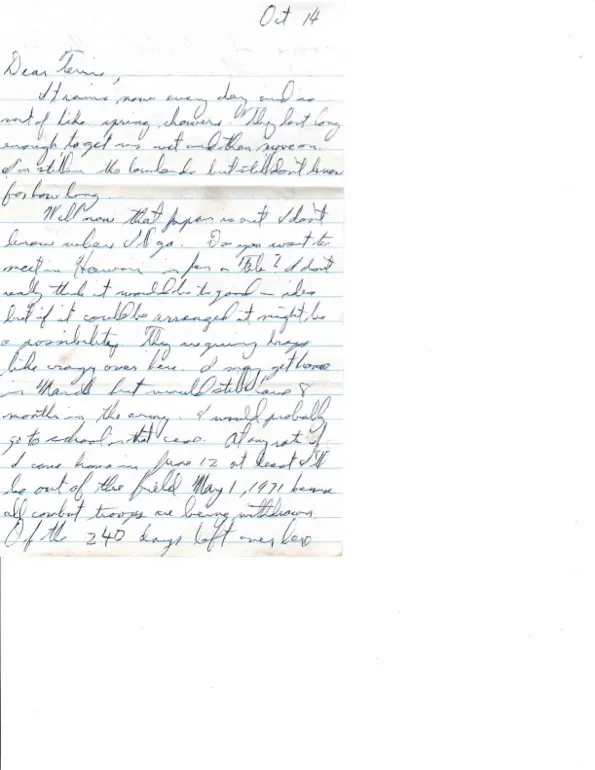 Oct 14
Dear Terri,
It rains now every day and is
sort of like spring showers. They last long
enough to get us wet and then move on.
I'm still in the lowlands but still don't know
for how long.
Well now that Japan is out I don't
know where I'll go. Do you want to
meet in Hawaii in Jan or Feb? I don't
really think it would be to good an idea
but if it could be arranged it might be
a possibility. They are giving drops
like crazy over here. I may get home
in March but would still have 8
months in the army. I would probably
go to school in that case. At any rate if
I come home in June 12 at least I'll
be out of the field May 1, 1971 because
all combat troops are being withdrawn.
Of the 240 days left over here